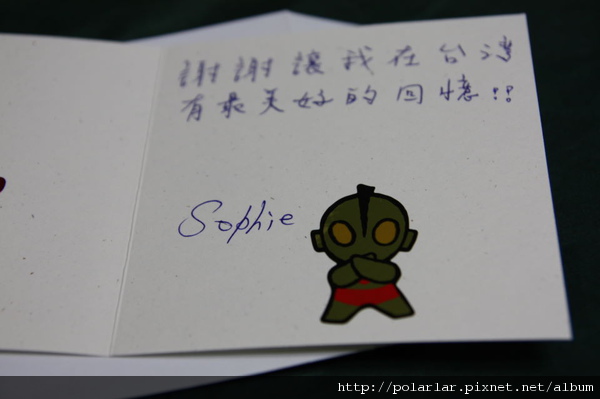 謝謝讓我在台灣
有最美好的回憶!!
Sophie
http://polarlar.pixnet.net/album